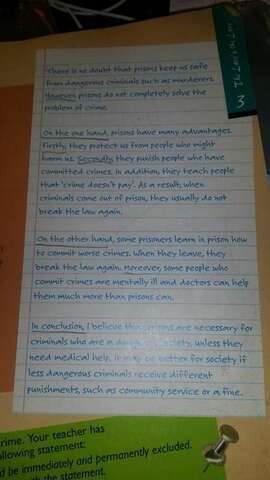 There is no doubt that prisons keep us safe
from dangerous criminals such as murderers.
However, prisons do not completely solve the
problem of crime.
On the one hand, prisons have many advantages.
Firstly, they protect us from people who might
harm us. Secondly, they punish people who have
committed crimes. In addition, they teach people
that 'crime doesn't pay'. As a result, when
criminals come out of prison, they usually do not
break the law again.
On the other hand, some prisoners learn in prison how
to commit worse crimes. When they leave, they
break the law again. Moreover, some people who
commit crimes are mentally ill and doctors can help
them much more than prisons can.
In conclusion, I believe that prisons are necessary for
criminals who are a danger to society, unless they
need medical help. It may be better for society if
less dangerous criminals receive different
punishments, such as community service or a fine.
3
rime. Your teacher has
ollowing statement:
d be immediately and permanently excluded.
the statement.